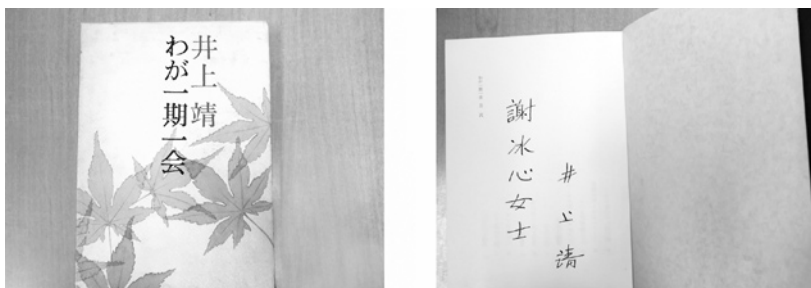 井上 靖
わが一期一会
謝冰心女士
井上靖